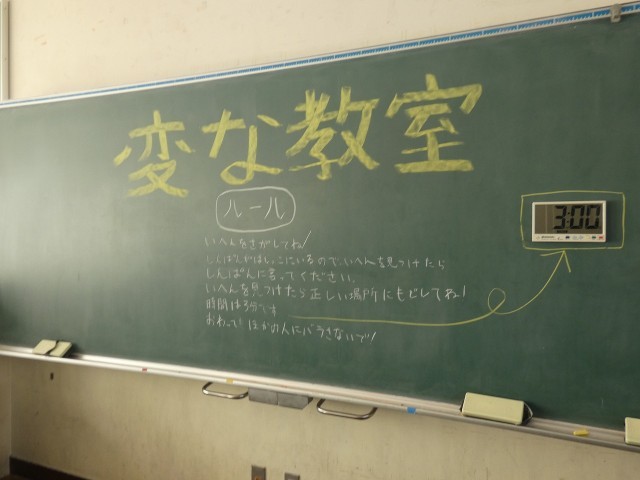 変な教室
ルール
いへんをさがしてね!
しんぱんがはしっこにいるので、いへんを見つけたら
しんぱんに言ってください。
いへんを見つけたら正しい場所にもどしてね!
時間は3分です
おわっても ほかの人にバラさないで!
3:00